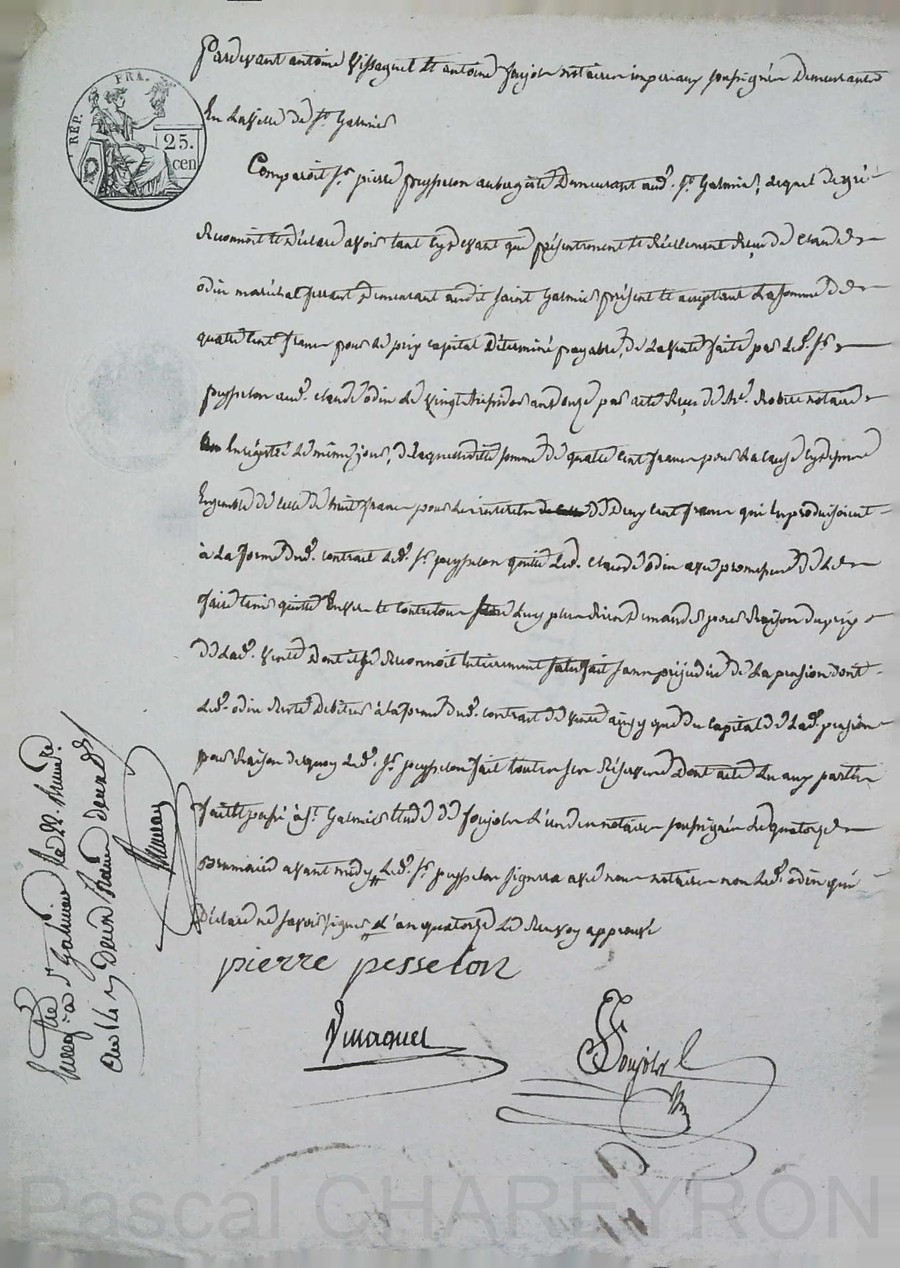 RÉP. FRA.
25.
cen
Pardevant antoine Vissaguet et antoine Foujols notaires imperiaux soussignés Demeurants
En la ville de St. Galmier
Comparoit Sr. pierre peysselon aubergiste Demeurant aud. St. Galmier, Lequel de gré
Reconnoit et Déclare avoir tant cy devant que présentement et Réellement Reçu de Claude
odin maréchal ferrant Demeurant audit Saint Galmier présent et acceptant La somme de
quatre cent francs pour le prix capital Déterminé payable, de la vente faite par Led. Sr.
peysselon aud. claude odin le vingt six an onze par acte Reçu de notaire
Enrégistré le même jour, De laquelle ditte somme de quatre cent francs pour la cause cy dessus
Ensemble de celle de huit francs pour les interets de Deux cent francs qui en produisoient
à La forme dud. contrat Led. Sr. peysselon quitte Led. claude odin avec promesse de Le
faire tenir quitte Envers et contre tous Luy plus Rien Demander pour Raison du prix
de Lad. Vente Dont il se Reconnoit Entierement satisfait sans préjudice de La pension dont
Led. odin Reste Debiteur à la forme dud. contrat de vente ainsy que du capital de Lad. pension
pour Raison de quoy Led. Sr. peysselon fait toutes ses Réserves Dont acte Lu aux parties
fait et passé à St. Galmier Etude de Foujols L'un des notaires soussignés Le quatorze
Brumaire avant midy Led. Sr. peysselon signera avec nous notaires non Led. odin qui
Déclare ne savoir signer L'an quatorze Le Renvoy approuvé
pierre pesselon
Vissaguet
Foujols
Enregistré à St Galmier le 22 Brumaire
an 14
Pascal CHAREYRON